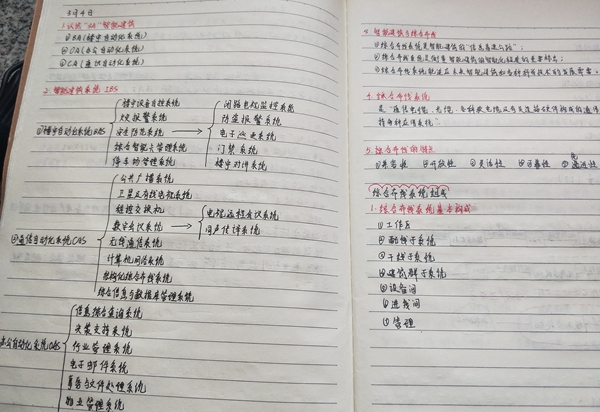 3月4日
1.认识"3A"智能建筑
①BA(楼宇自动化系统)
②OA(办公自动化系统)
③CA(通讯自动化系统)
2.智能建筑系统 IBS
①楼宇自动化系统BAS
楼宇设备自控系统
火灾报警系统
安全防范系统
综合智能卡管理系统
停车场管理系统
闭路电视监控系统
防盗报警系统
电子巡更系统
门禁系统
楼宇对讲系统
②通信自动化系统CAS
公共广播系统
卫星及有线电视系统
程控交换机
数字会议系统
无线通信系统
计算机网络系统
结构化综合布线系统
综合信息与数据库管理系统
电视远程会议系统
同声传译系统
办公自动化系统OAS
信息综合查询系统
决策支持系统
行业管理系统
电子邮件系统
事务与文件处理系统
物业管理系统
智能建筑与综合布线
①综合布线系统是智能建筑的"信息高速公路";
②综合布线系统是衡量智能建筑的智能化程度的重要标志;
③综合布线系统能适应未来智能建筑和各种科学技术的发展需要。
4.综合布线系统
是"通信电缆、光缆、各种软电缆及有关连接硬件构成的通用
持多种应用系统"。
5.综合布线的特点
①兼容性 ②开放性 ③灵活性 ④可靠性 ⑤先进性
综合布线系统组成
1.综合布线系统基本构成
①工作区
②配线子系统
③干线子系统
④建筑群子系统
⑤设备间
⑥进线间
⑦管理